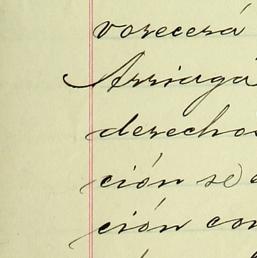 vorecerá
Arriaga
derechos
ción se
ción con